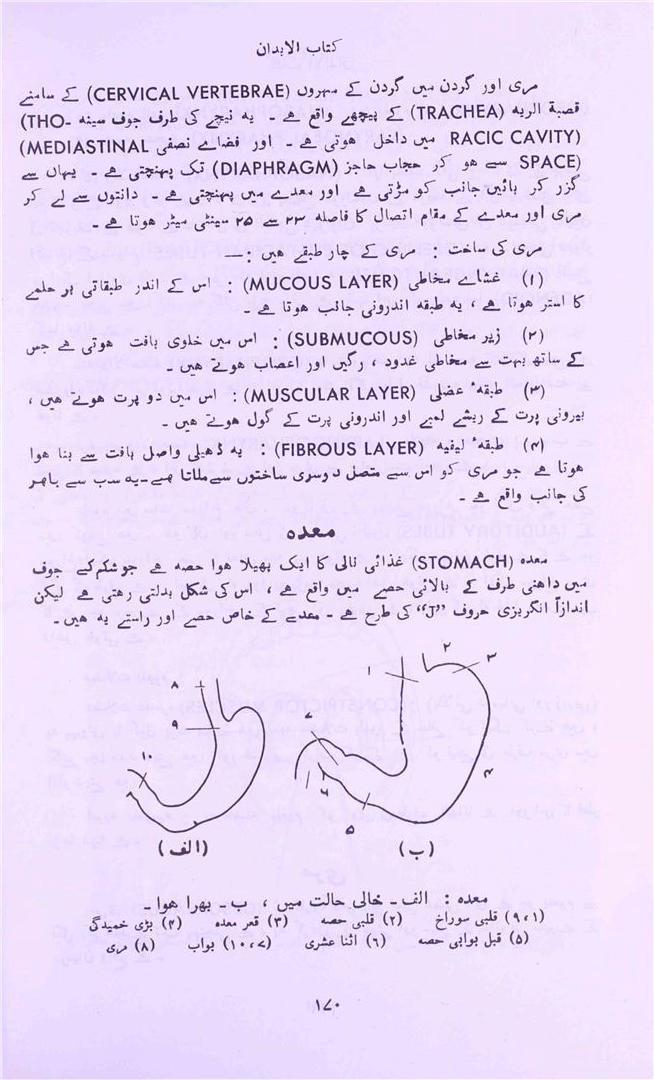 کتاب الابدان
مری اور گردن میں گردن کے مہروں (CERVICAL VERTEBRAE) کے سامنے
قصبۃ الریہ (TRACHEA) کے پیچھے واقع ہے ۔ یہ نیچے کی طرف جوف سینہ (THO-
RACIC CAVITY) میں داخل ہوتی ہے ۔ اور فضائے نصفی (MEDIASTINAL
SPACE) سے ہو کر حجاب حاجز (DIAPHRAGM) تک پہنچتی ہے ۔ یہاں سے
گزر کر بائیں جانب کو مڑتی ہے اور معدے میں پہنچتی ہے ۔ دانتوں سے لے کر
مری اور معدے کے مقام اتصال کا فاصلہ ۲۳ سے ۲۵ سینٹی میٹر ہوتا ہے ۔
مری کی ساخت : مری کے چار طبقے ہیں :—
(۱) غشائے مخاطی (MUCOUS LAYER) : اس کے اندر طبقاتی بر حلمے
کا استر ہوتا ہے ، یہ طبقہ اندرونی جانب ہوتا ہے ۔
(۲) زیر مخاطی (SUBMUCOUS) : اس میں خلوی بافت ہوتی ہے جس
کے ساتھ بہت سے مخاطی غدود ، رگیں اور اعصاب ہوتے ہیں ۔
(۳) طبقہٴ عضلی (MUSCULAR LAYER) : اس میں دو پرت ہوتے ہیں ،
بیرونی پرت کے ریشے لمبے اور اندرونی پرت کے گول ہوتے ہیں ۔
(۴) طبقہٴ لیفیہ (FIBROUS LAYER) : یہ ڈھیلی واصل بافت سے بنا ہوا
ہوتا ہے جو مری کو اس سے متصل دوسری ساختوں سے ملاتا ہے ۔ یہ سب سے باہر
کی جانب واقع ہے ۔
معدہ
معدہ (STOMACH) غذائی نالی کا ایک پھیلا ہوا حصہ ہے جو شکم کے جوف
میں داھنی طرف کے بالائی حصے میں واقع ہے ، اس کی شکل بدلتی رھتی ہے لیکن
اندازاً انگریزی حروف ”J“ کی طرح ہے ۔ معدے کے خاص حصے اور راستے یہ ہیں ۔
۱ ۲ ۳
۴
۵
۶
۷
۸
۹
۱۰
(الف) (ب)
معدہ : الف ۔ خالی حالت میں ، ب ۔ بھرا ہوا ۔
(۹،۱) قلبی سوراخ (۲) قلبی حصہ (۳) قعر معدہ (۴) بڑی خمیدگی
(۵) قبل بوابی حصہ (۶) اثنا عشری (۱۰،۷) بواب (۸) مری
۱۷۰